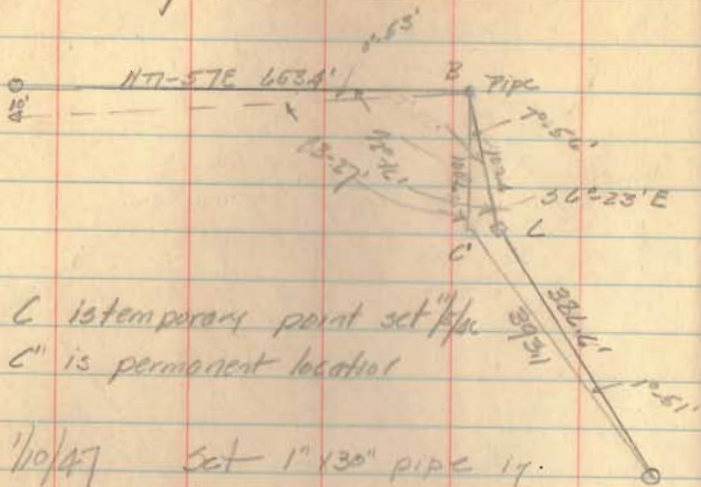 0°-53'
N77-57E 653.4'
B Pipe
10'
7°-56'
S6°-23'E
C
C'
386.6'
393.1
1°-51'
C is temporary point set
C" is permanent location
1/10/47 Set 1" x 30" pipe in.